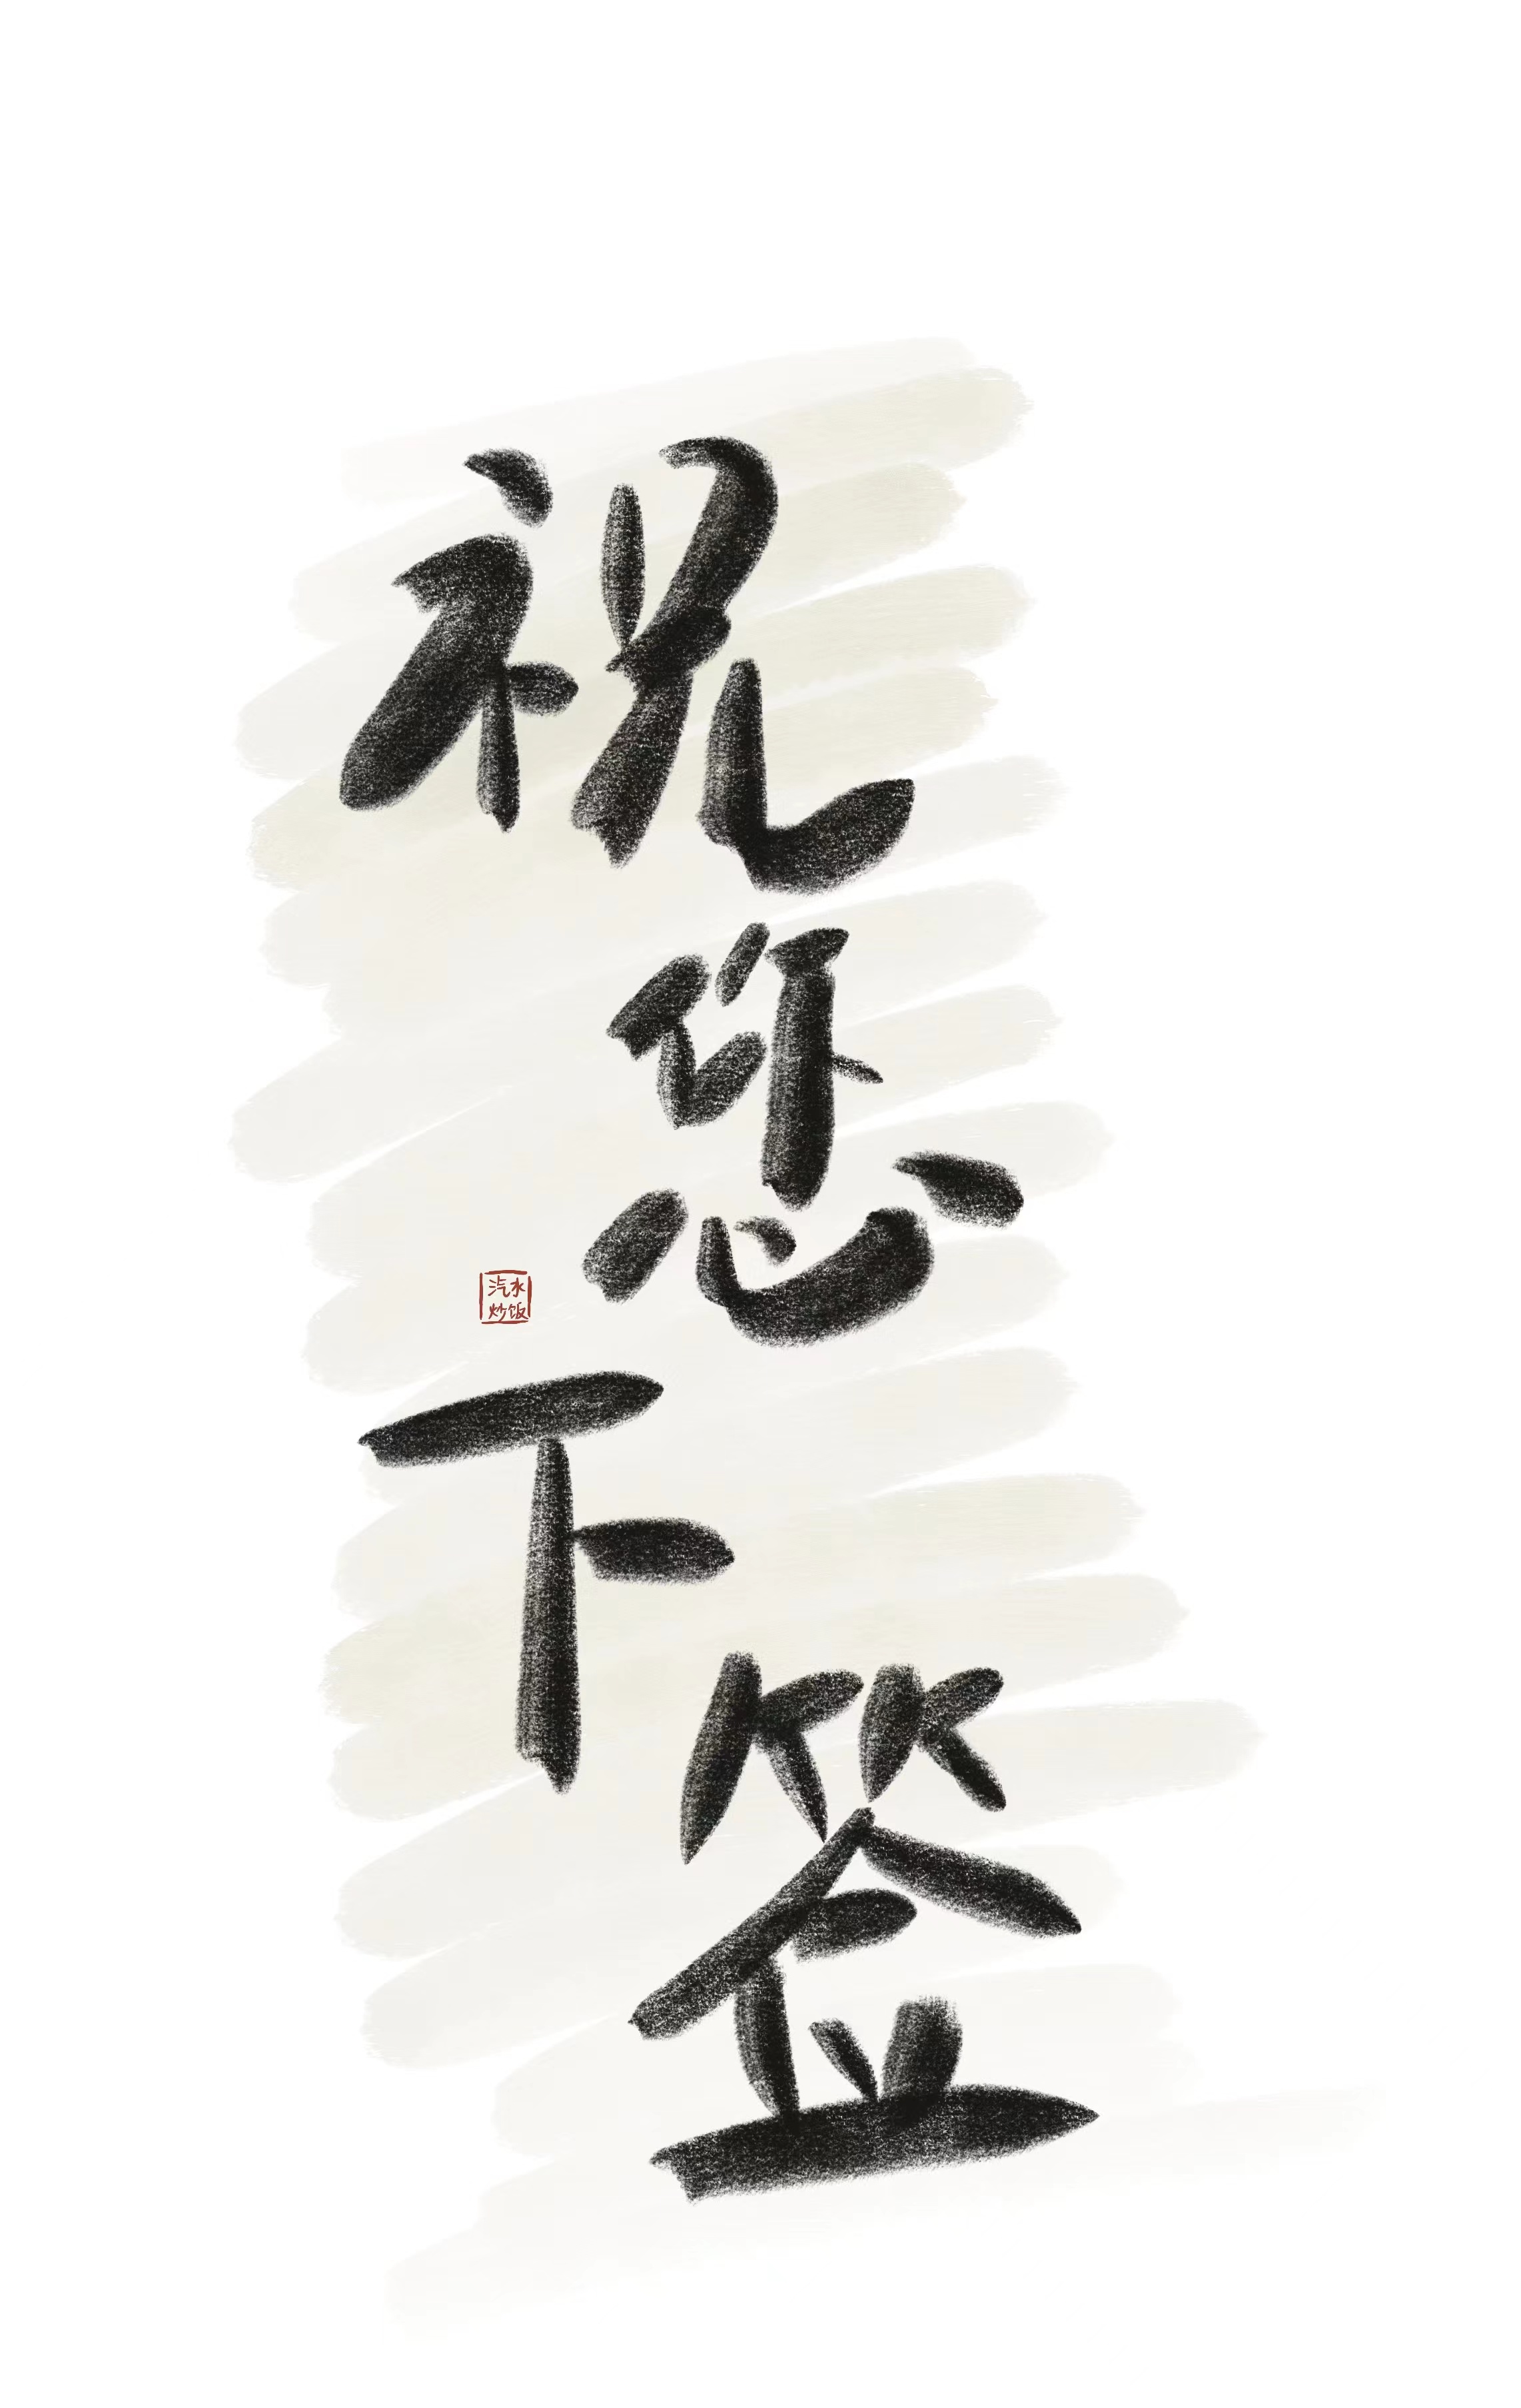 祝您下签
汽水
炒饭